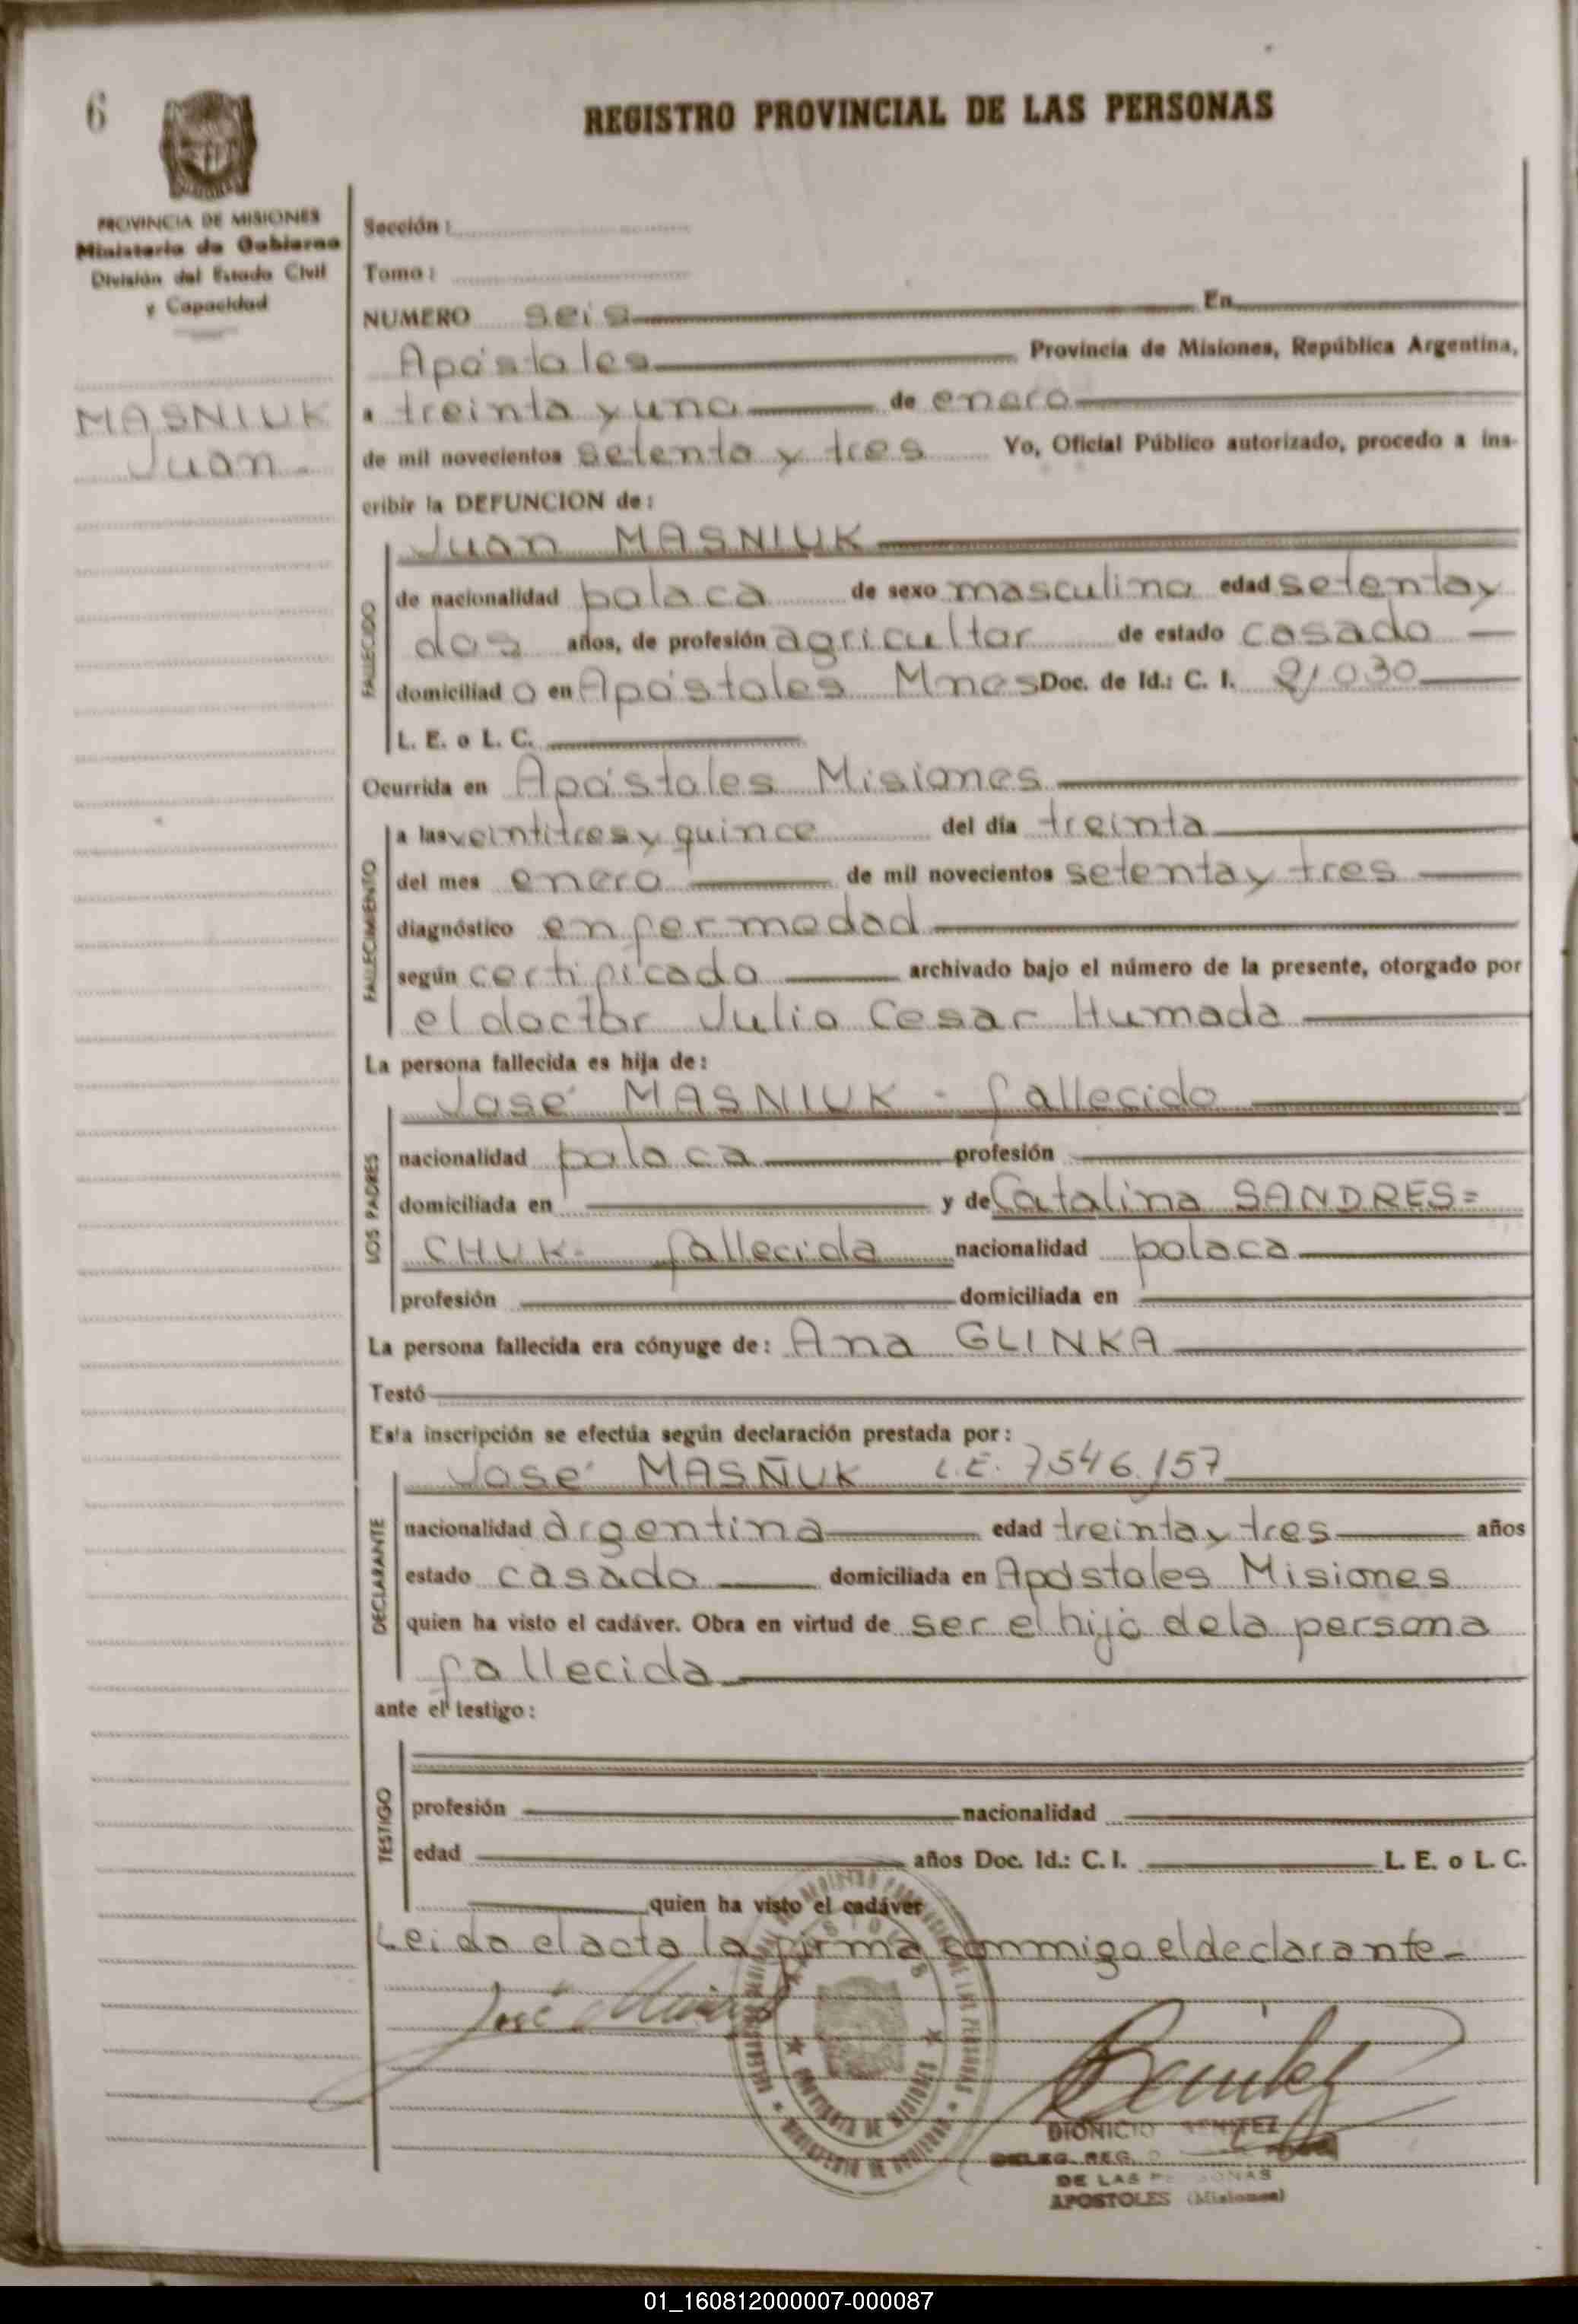 6
REGISTRO PROVINCIAL DE LAS PERSONAS
PROVINCIA DE MISIONES
Ministerio de Gobierno
División del Estado Civil
y Capacidad
MASNIUK
Juan.
Sección :
Tomo :
NUMERO seis En
Apóstoles Provincia de Misiones, República Argentina,
a treinta y uno de enero
de mil novecientos setenta y tres Yo, Oficial Público autorizado, procedo a ins-
cribir la DEFUNCION de :
Juan MASNIUK
FALLECIDO
de nacionalidad polaca de sexo masculino edad setenta y
dos años, de profesión agricultor de estado casado
domiciliad o en Apóstoles Mnes Doc. de Id.: C. I. 21030
L. E. o L. C.
Ocurrida en Apóstoles Misiones
FALLECIMIENTO
a las veintitres y quince del día treinta
del mes enero de mil novecientos setenta y tres
diagnóstico enfermedad
según certificado archivado bajo el número de la presente, otorgado por
el doctor Julio Cesar Humada
La persona fallecida es hija de :
LOS PADRES
José MASNIUK - fallecido
nacionalidad polaca profesión
domiciliada en y de Catalina SANDRES=
CHUK- fallecida nacionalidad polaca
profesión domiciliada en
La persona fallecida era cónyuge de : Ana GLINKA
Testó
Esta inscripción se efectúa según declaración prestada por :
DECLARANTE
José MASÑUK L.E. 7546.157
nacionalidad argentina edad treinta y tres años
estado casado domiciliada en Apóstoles Misiones
quien ha visto el cadáver. Obra en virtud de ser el hijo de la persona
fallecida
ante el testigo :
TESTIGO
profesión nacionalidad
edad años Doc. Id.: C. I. L. E. o L. C.
quien ha visto el cadáver
Leida el acta la firma conmigo el declarante-
José
PROVINCIA DE MISIONES
MINISTERIO DE GOBIERNO
Benitez
DIONICIO BENITEZ
DELEG. REG.
DE LAS PERSONAS
APOSTOLES (Misiones)
01_160812000007-000087